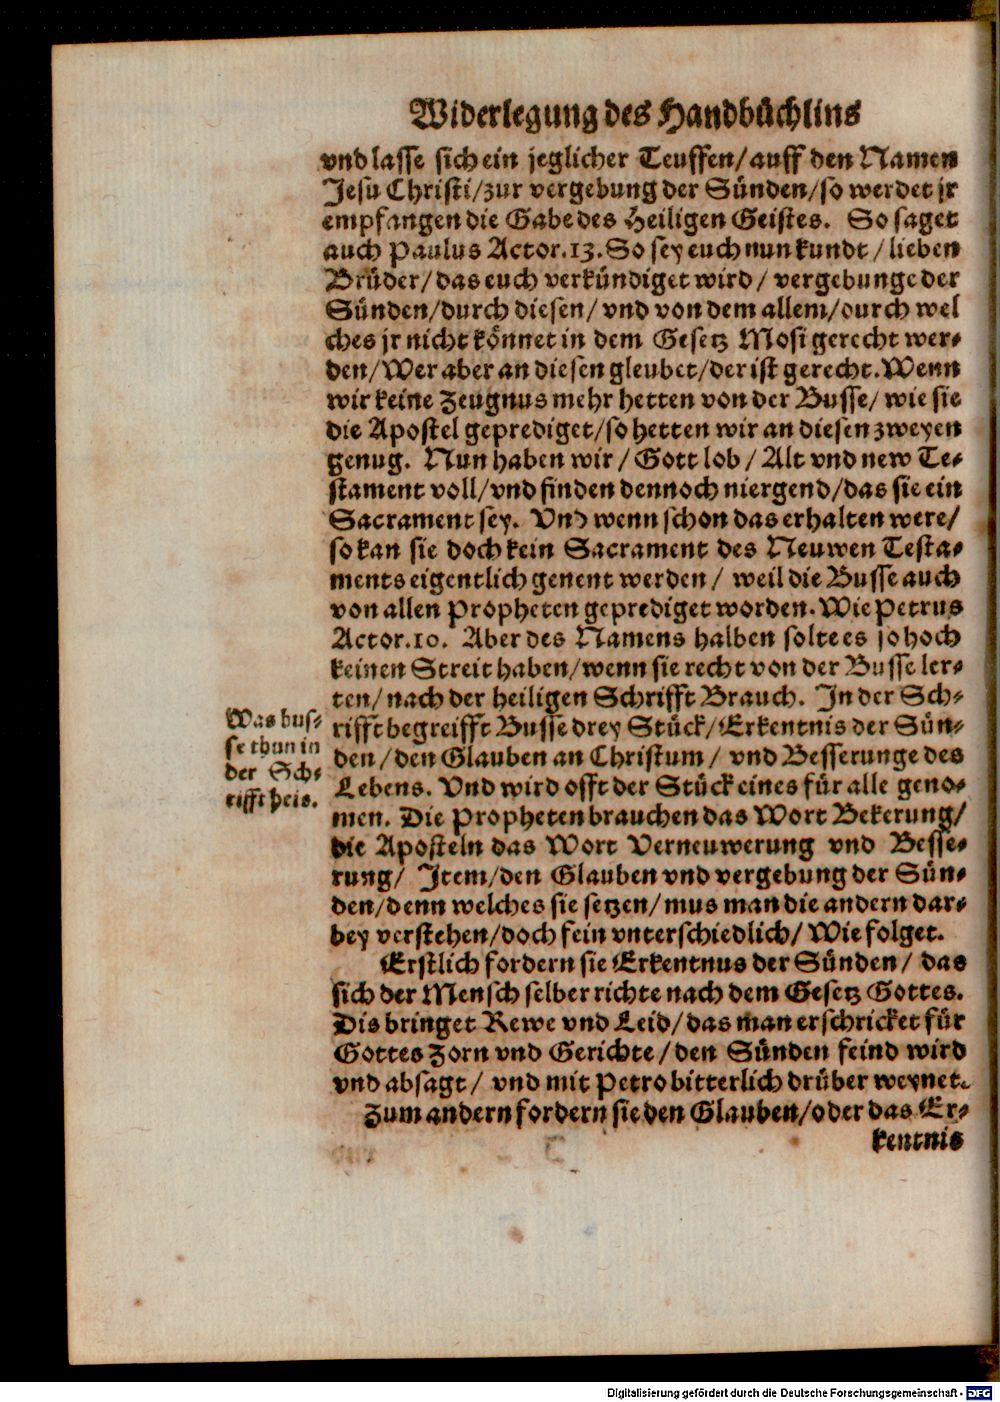 Widerlegung des Handbůchlins
vnd lasse sich ein jeglicher Teuffen/auff den Namen
Jesu Christi/zur vergebung der Sünden/so werdet jr
empfangen die Gabe des Heiligen Geistes. So saget
auch Paulus Actor.13. So sey euch nun kundt/lieben
Brüder/das euch verkündiget wird/vergebunge der
Sünden/durch diesen/vnd von dem allem/durch wel
ches jr nicht könnet in dem Gesetz Mosi gerecht wer-
den/Wer aber an diesen gleubet/der ist gerecht. Wenn
wir keine Zeugnus mehr hetten von der Busse/wie sie
die Apostel geprediget/so hetten wir an diesen zweyen
genug. Nun haben wir/Gott lob/Alt vnd new Te-
stament voll/vnd finden dennoch niergend/das sie ein
Sacrament sey. Vnd wenn schon das erhalten were/
so kan sie doch kein Sacrament des Neuwen Testa-
ments eigentlich genent werden/weil die Busse auch
von allen Propheten geprediget worden. Wie Petrus
Actor.10. Aber des Namens halben solte es so hoch
keinen Streit haben/wenn sie recht von der Busse ler-
ten/nach der heiligen Schrifft Brauch. In der Sch-
rifft begreifft Busse drey Stück/Erkentnis der Sün-
den/den Glauben an Christum/vnd Besserunge des
Lebens. Vnd wird offt der Stück eines für alle geno-
men. Die Propheten brauchen das Wort Bekerung/
die Aposteln das Wort Verneuwerung vnd Besse-
rung/Item/den Glauben vnd vergebung der Sün-
den/denn welches sie setzen/mus man die andern dar-
bey verstehen/doch fein vnterschiedlich/Wie folget.
Was bus-
se thun in
der Sch-
rifft heis.
Erstlich fordern sie Erkentnus der Sünden/das
sich der Mensch selber richte nach dem Gesetz Gottes.
Dis bringet Rewe vnd Leid/das man erschricket für
Gottes Zorn vnd Gerichte/den Sünden feind wird
vnd absagt/vnd mit Petro bitterlich drüber weynet.
Zum andern fordern sie den Glauben/oder das Er-
kentnis
Digitalisierung gefördert durch die Deutsche Forschungsgemeinschaft - DFG